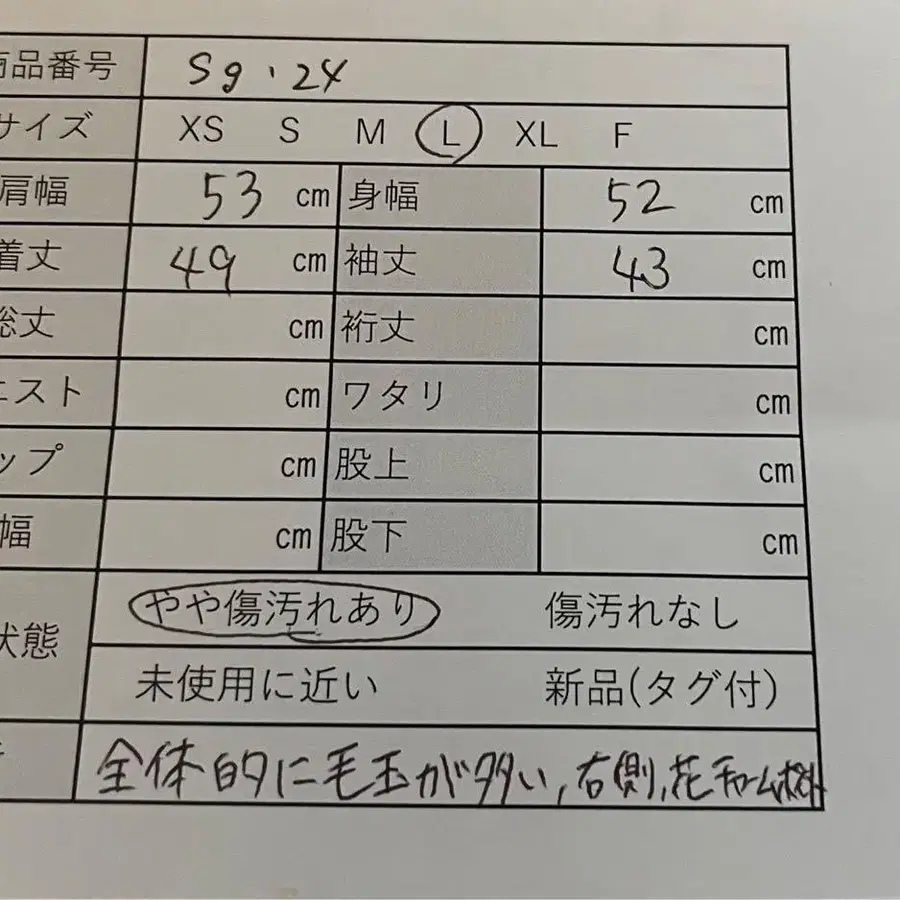 商品番号 Sg・24
サイズ XS S M L XL F
肩幅 53 cm 身幅 52 cm
着丈 49 cm 袖丈 43 cm
総丈 cm 裄丈 cm
エスト cm ワタリ cm
ップ cm 股上 cm
幅 cm 股下 cm
状態 やや傷汚れあり 傷汚れなし
未使用に近い 新品(タグ付)
全体的に毛玉が多い,右側,花チャーム